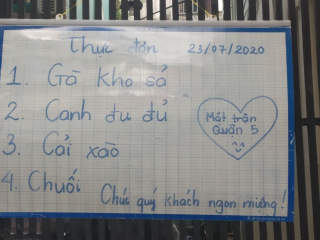 Thực đơn 23/07/2020
1. Gà kho sả
2. Canh đu đủ
3. Cải xào
4. Chuối
Mặt trận
Quận 5
Chúc quý khách ngon miệng!